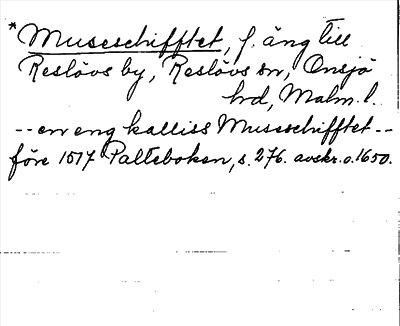 * Museschifftet, f. äng till
Reslövs by, Reslövs sn, Onsjö
hrd, Malm. l.
-- en eng kalliss Museschifftet --
före 1517 Palteboken, s. 276. avskr. o. 1650.